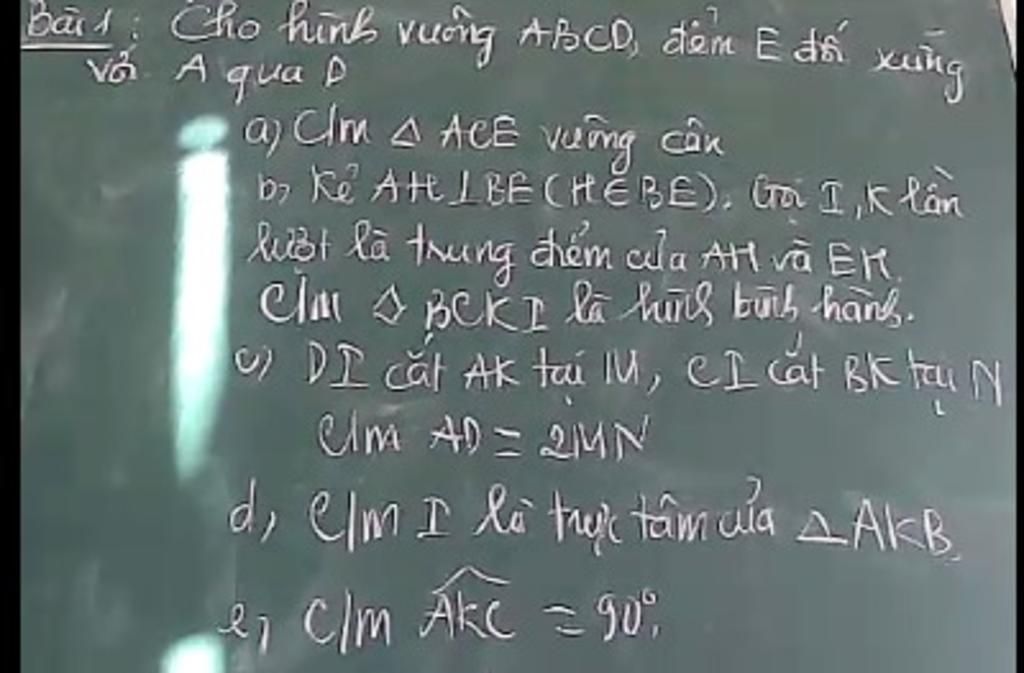 Bài 1: Cho hình vuông ABCD, điểm E đối xứng
với A qua D
a) C/m Δ ACE vuông cân
b, Kẻ AH ⊥ BE (H ∈ BE). Gọi I, K lần
lượt là trung điểm của AH và EH.
C/m ◇ BCKI là hình bình hành.
c) DI cắt AK tại M, CI cắt BK tại N
C/m AD = 2MN
d, C/m I là trực tâm của Δ AKB.
e, C/m \widehat{AKC} = 90°.